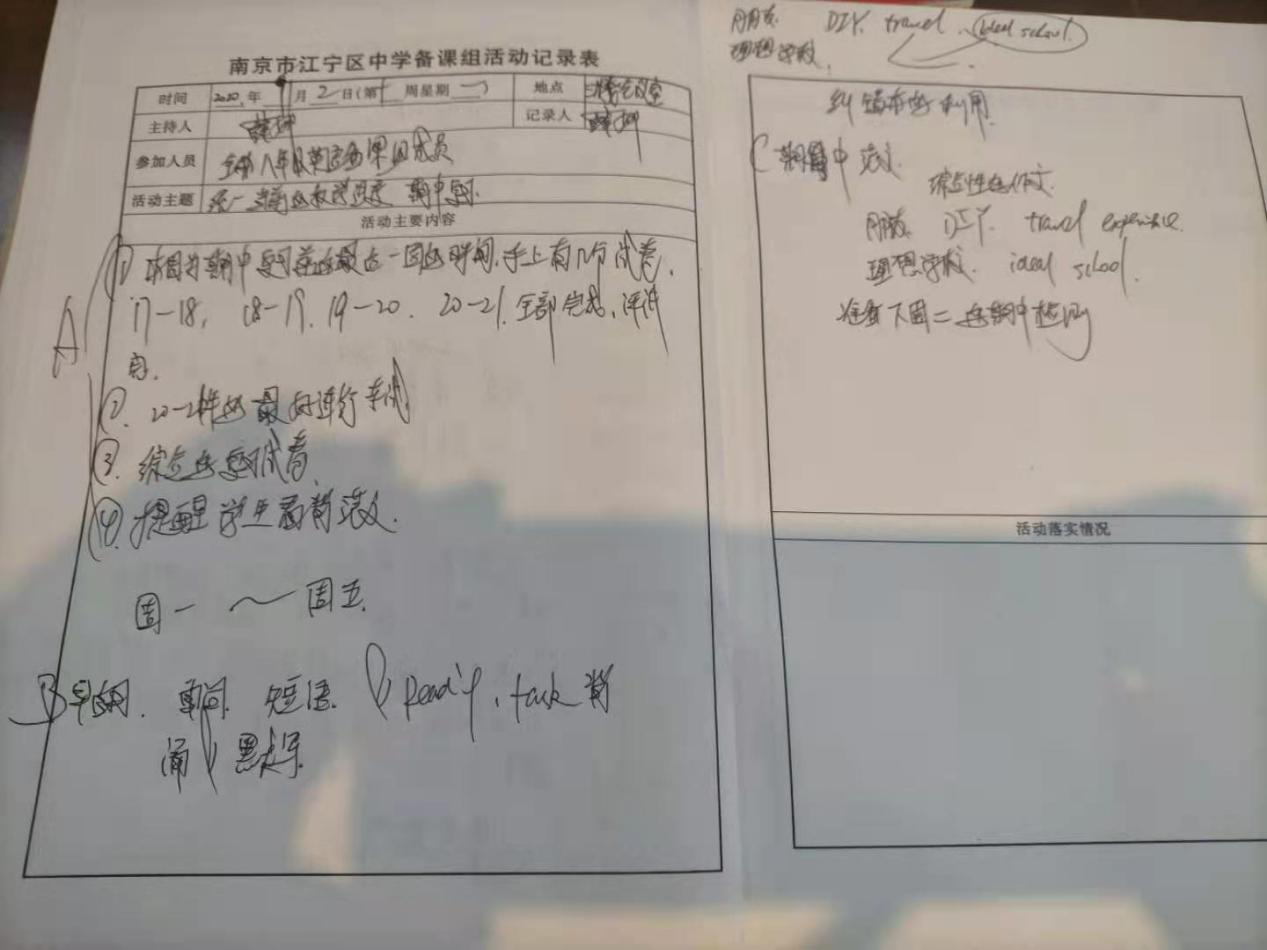 南京市江宁区中学备课组活动记录表
时间 2020年 月2日(第十 周星期一) 地点
主持人 记录人
参加人员 全体八年级英语备课组成员
活动主题 统一当前的教学进度 期中复习.
活动主要内容
A ① 本周为期中复习前的最后一周的时间,手上有几份试卷,
17-18, 18-19, 19-20, 20-21.全部完成,评讲
完.
②. 20-21 最好进行考试
③. 综合的复习试卷
④. 提醒学生 背范文.
周一 ~ 周五
B 早 期. 单词. 短语. Read'g, task 背
诵 默写
朋友. DIY. travel. ideal school.
理想学校.
纠错本的利用
C 期中 范文
综合性的作文.
朋友 DIY. travel experience.
理想学校. ideal school.
准备下周二的期中检测
活动落实情况